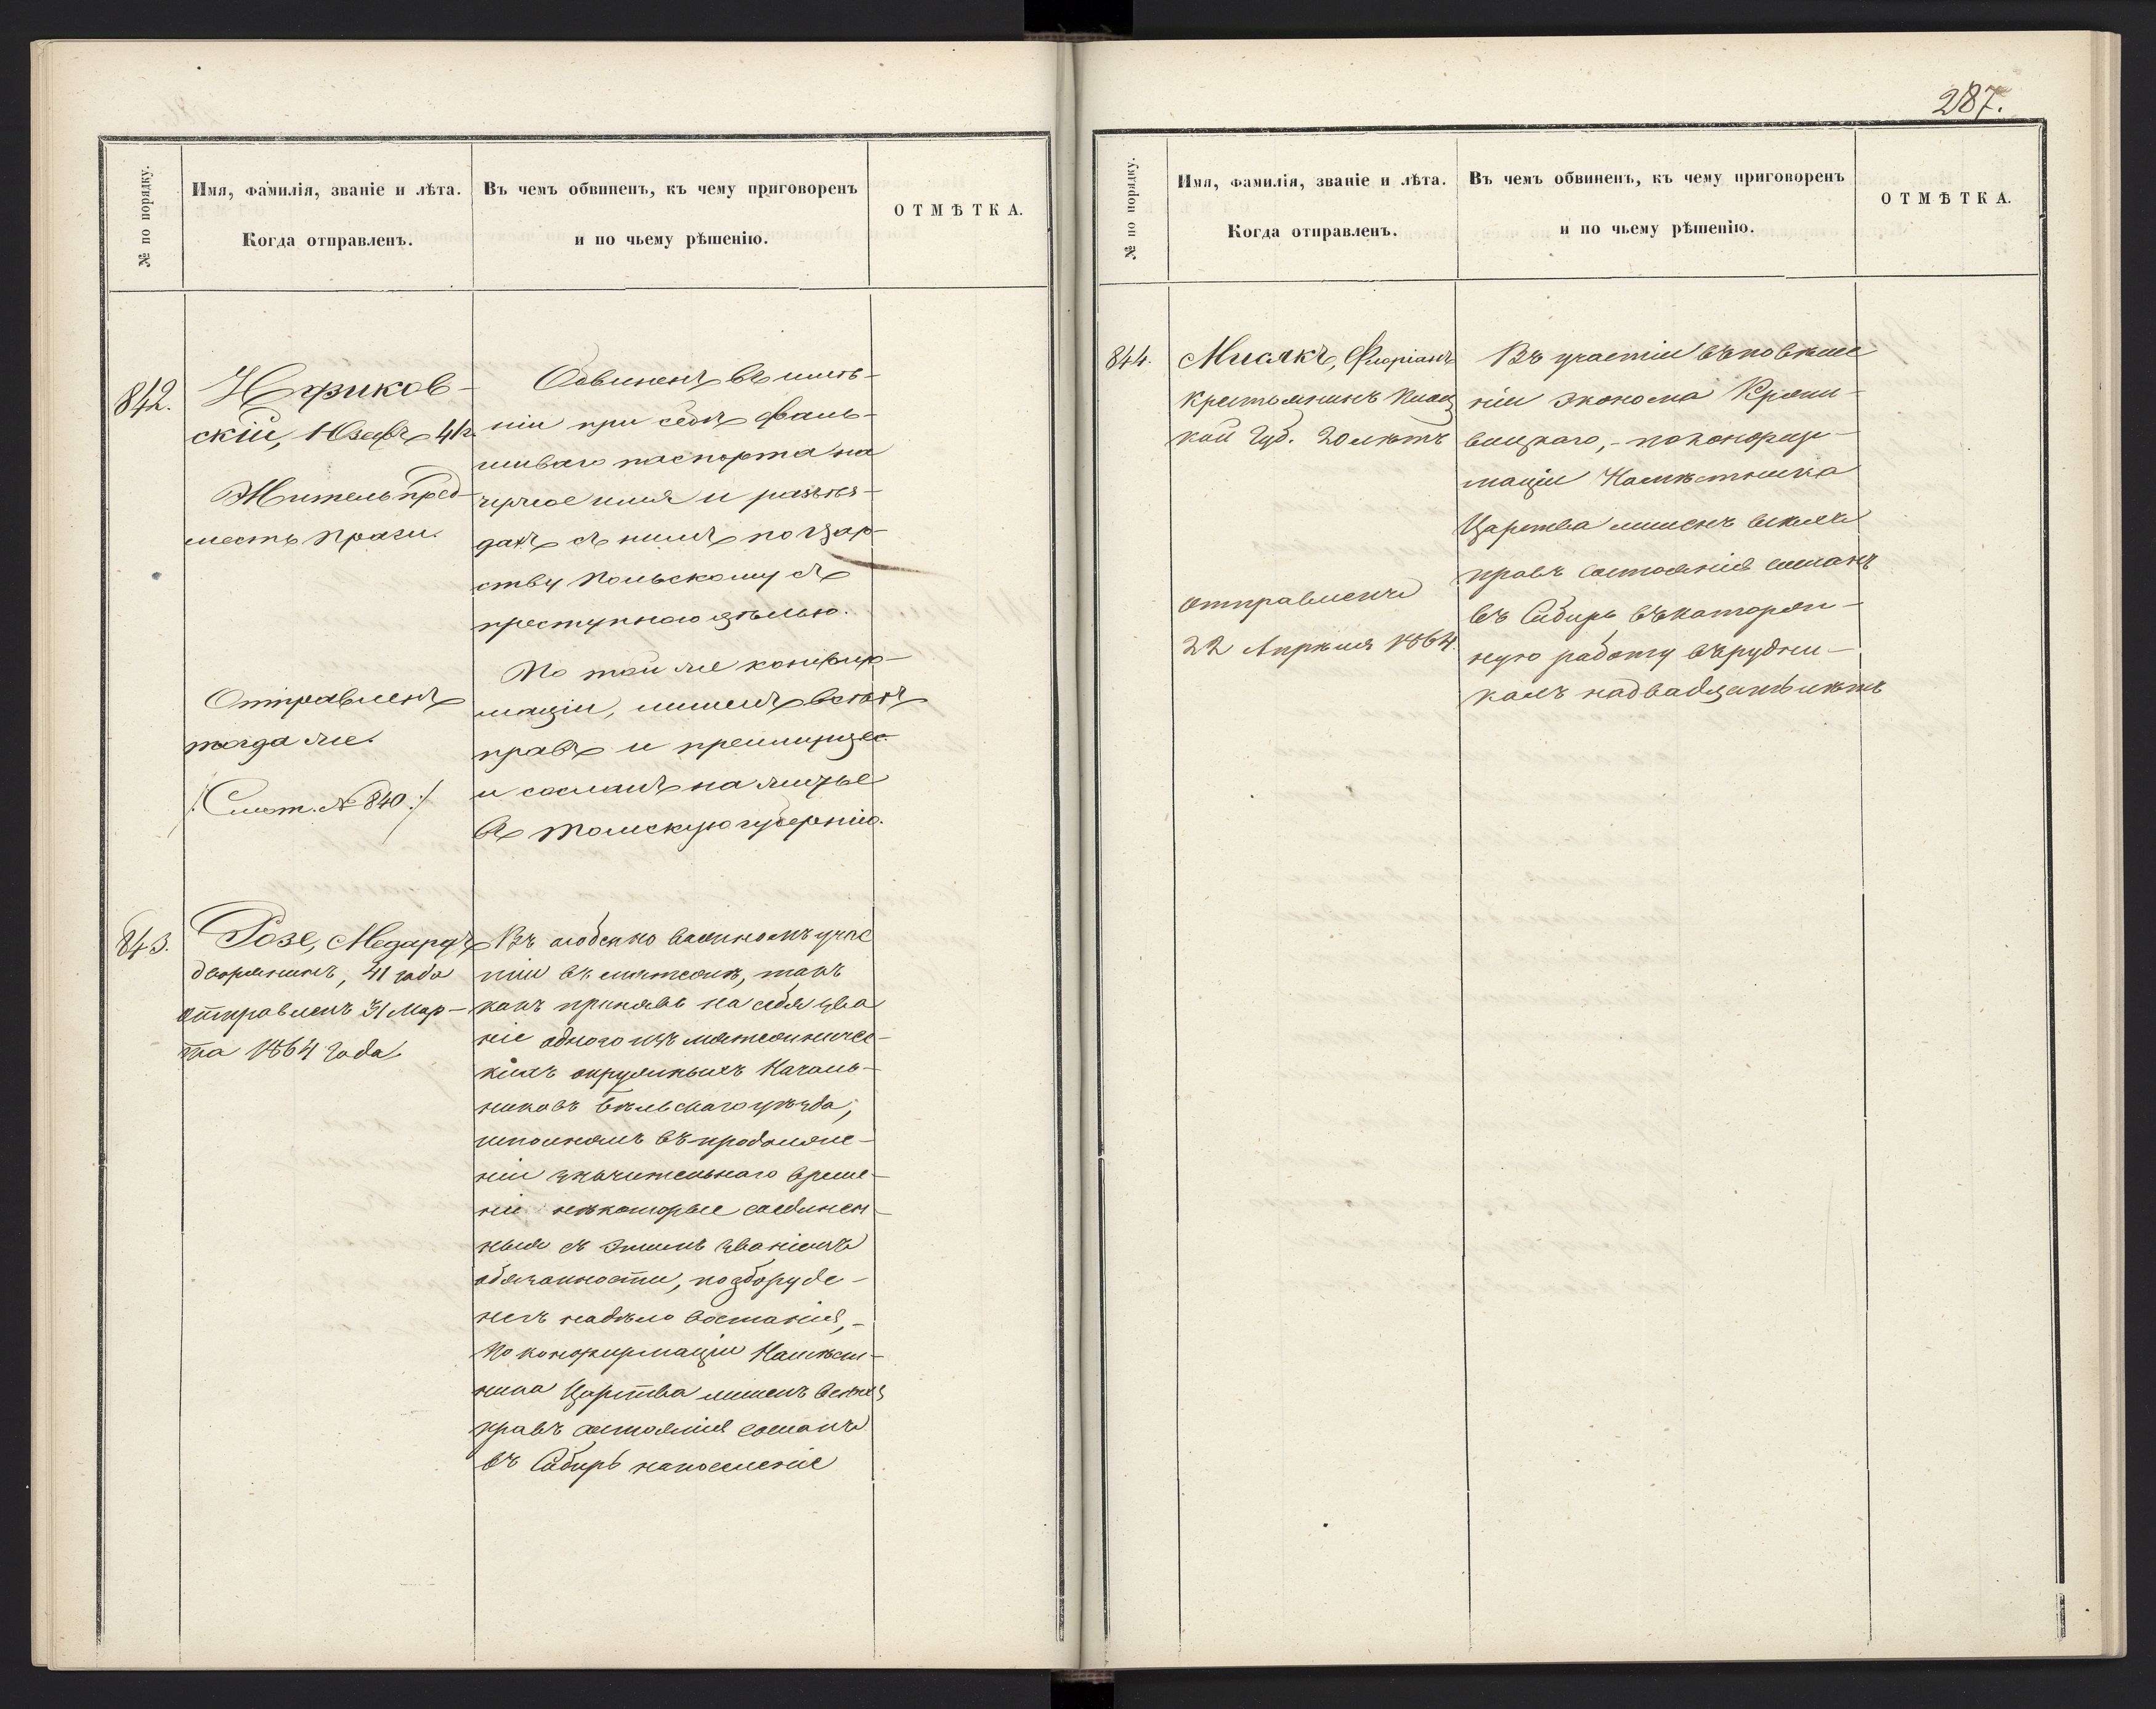 № по порядку.
Имя, фамилія, званіе и лѣта.
Когда отправленъ.
Въ чемъ обвиненъ, къ чему приговоренъ
и по чьему рѣшенію.
ОТМѢТКА.
842.
скій, Юзефъ 41 г.
Житель пред-
мѣстья Праги.
Отправленъ
тогда же.
/: Смот. № 840 :/
Обвиненъ въ имѣ-
ніи при себѣ фаль-
шиваго паспорта на
чужое имя и разъѣз-
дахъ съ нимъ по Цар-
ству Польскому съ
преступною цѣлью.
По той же конфир-
маціи, лишенъ всѣхъ
правъ и преимущес.
и сосланъ на житье
въ Томскую губернію.
843.
Розе, Медардъ
дворянинъ, 41 года
отправленъ 31 Мар-
та 1864 года
Въ особенно важномъ учас
тіи въ мятежѣ, такъ
какъ принявъ на себя зва
ніе одного изъ мятежничес-
кихъ окружныхъ Началь-
никовъ Бѣльскаго уѣзда,
исполнялъ въ продолже-
ніи значительнаго време-
ни нѣкоторые соединен-
ныя съ этимъ званіемъ
обязанности, по сбору де-
негъ на дѣло востанія, -
По конфирмаціи Намѣст-
ника Царства лишенъ всѣхъ
правъ состоянія сосланъ
въ Сибирь на поселеніе
287.
№ по порядку.
Имя, фамилія, званіе и лѣта.
Когда отправленъ.
Въ чемъ обвиненъ, къ чему приговоренъ
и по чьему рѣшенію.
ОТМѢТКА.
844.
Мисякъ, Флоріанъ
Крестьянинъ Плоц
кой Губ. 20 лѣтъ
отправленъ
22 Апрѣля 1864.
Въ участіи въ повѣше
ніи эконома
по конфир-
маціи Намѣстника
Царства лишенъ всѣхъ
правъ состоянія сосланъ
въ Сибирь въ каторж-
ную работу въ рудни-
кахъ на двадцать лѣтъ